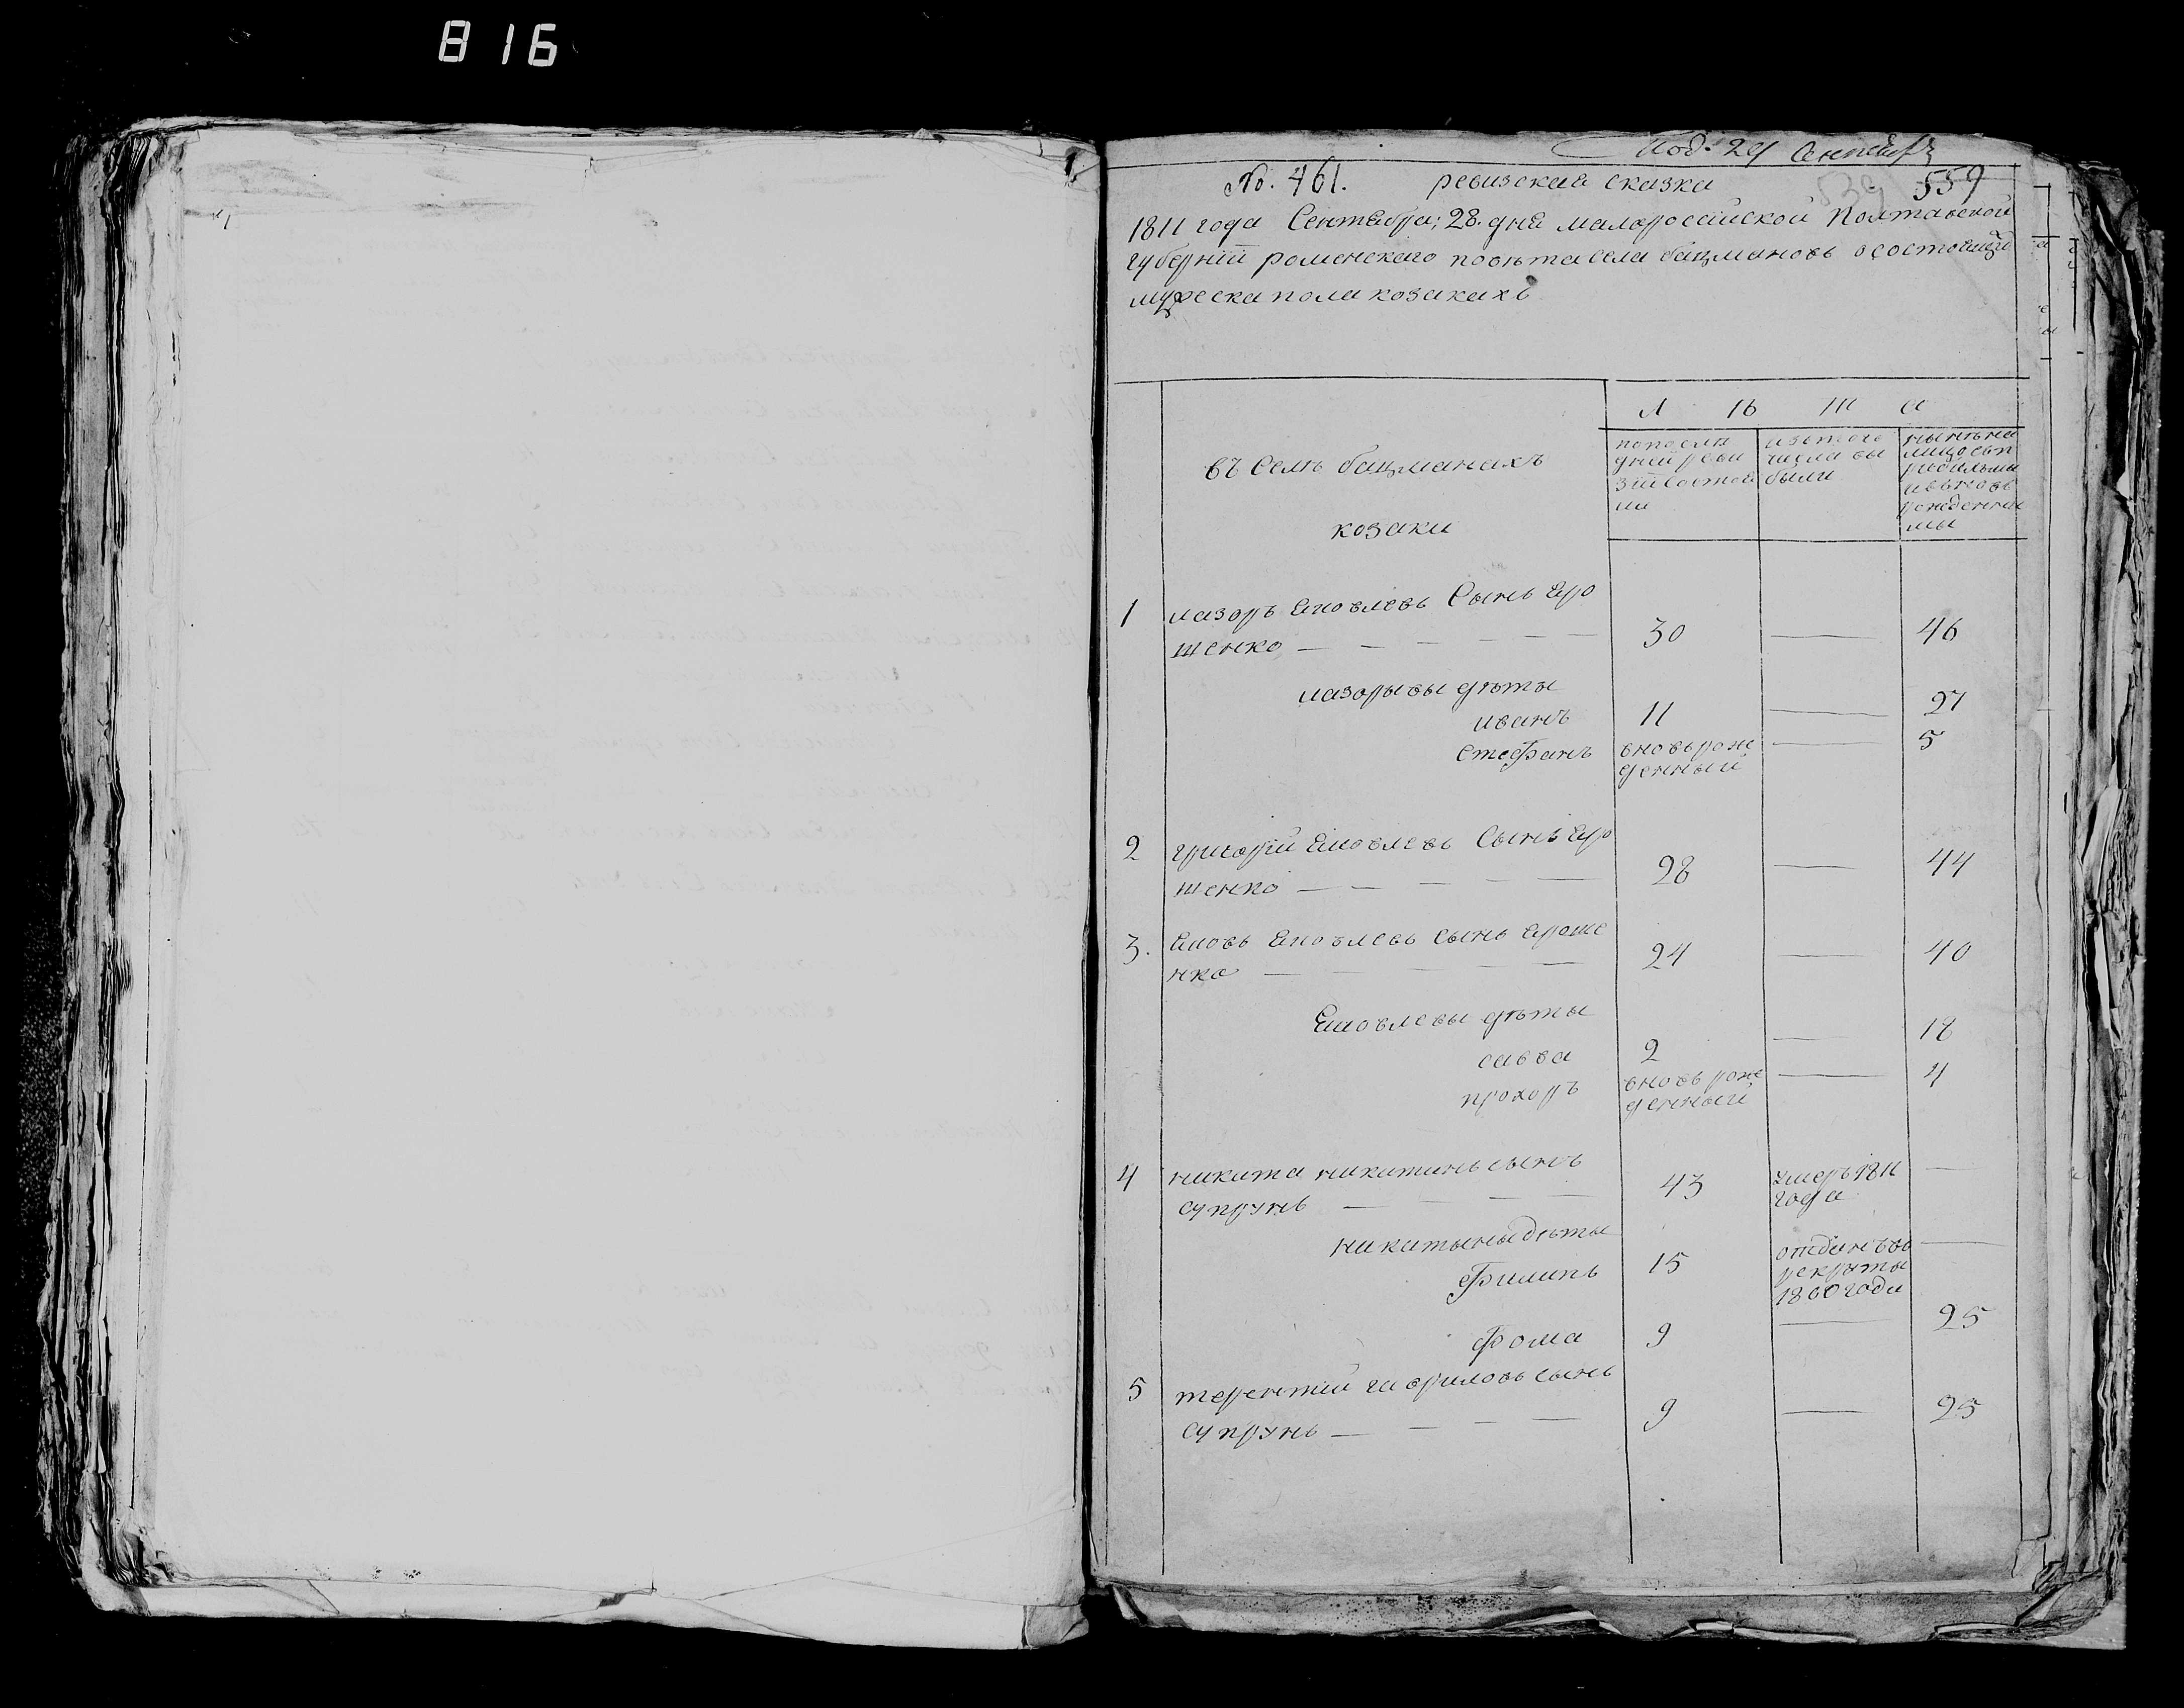 816
Под: 29 Сентебр
№. 461. ревизская сказка 559
1811 года Сентября; 28. дня малоросийской Полтавской
губерніи роменскаго повѣта села бацмановъ осостоящи
мужеска пола козакахъ
Л Ѣ Т А
въ Селѣ бацманахъ
козаки
попослѣ
дней реви
зіи состоя
ли
изтого
числа вы
были
нынѣ на
лицо съп
рибылыми
ивьновь
рожденны
мы
1 лазоръ Яковлевъ Сынъ Яро
шенко 30 46
лазоревы дѣты
иванъ 11 27
стефанъ вновьрож 5
денный
2 григорій Яковлевъ Сынъ Яро
шенко 28 44
3. Яковъ Яковлевъ сынъ яроше
нко 24 40
Яковлевы дѣты
савва 2 18
прохоръ вновьрож 4
денный
4 никита никитинъ сынъ
супрунъ 43 умеръ 1811
года
никитины дѣты
филипъ 15 отданъ въ
рекруты
180 года
фома 9 25
5 терентий гавриловъ сынъ
супрунъ 9 25